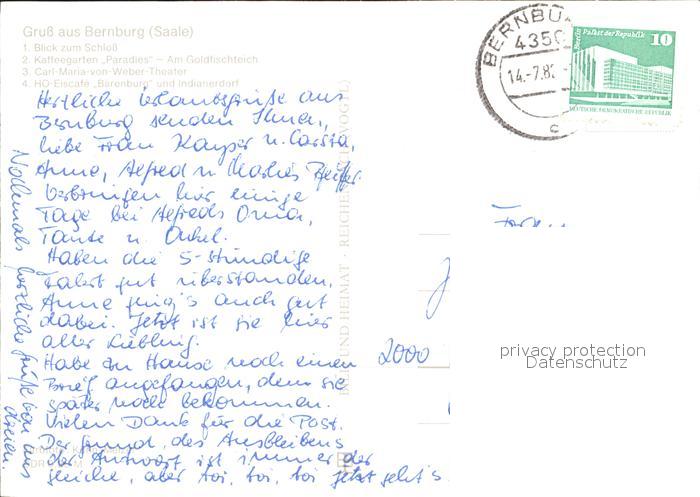 Gruß aus Bernburg (Saale)
1. Blick zum Schloß
2. Kaffeegarten „Paradies“ – Am Goldfischteich
3. Carl-Maria-von-Weber-Theater
4. HO-Eiscafé „Bärenburg“ und Indianerdorf
Herzliche Urlaubsgrüße aus
Bernburg senden Ihnen,
liebe Frau Kayser u. Carsta,
Anne, Alfred u. Marlies Pfeiffer.
Verbringen hier einige
Tage bei Alfreds Oma,
Tante u. Onkel.
Haben die 5-stündige
Fahrt gut überstanden,
Anne ging's auch gut
dabei. Jetzt ist sie hier
aller Liebling.
Habe zu Hause noch einen
Brief angefangen, den sie
später noch bekommen.
Vielen Dank für die Post.
Der Grund des Ausbleibens
der Antwort ist immer der
gleiche, aber toi, toi, toi jetzt geht's
Nochmals herzliche Grüße von uns
dreien.
BILD UND HEIMAT · REICHENBACH (VOGTL)
BERNBU
4350
14.-7.82
c
Berlin Palast der Republik
10
DEUTSCHE DEMOKRATISCHE REPUBLIK
2000
privacy protection
Datenschutz